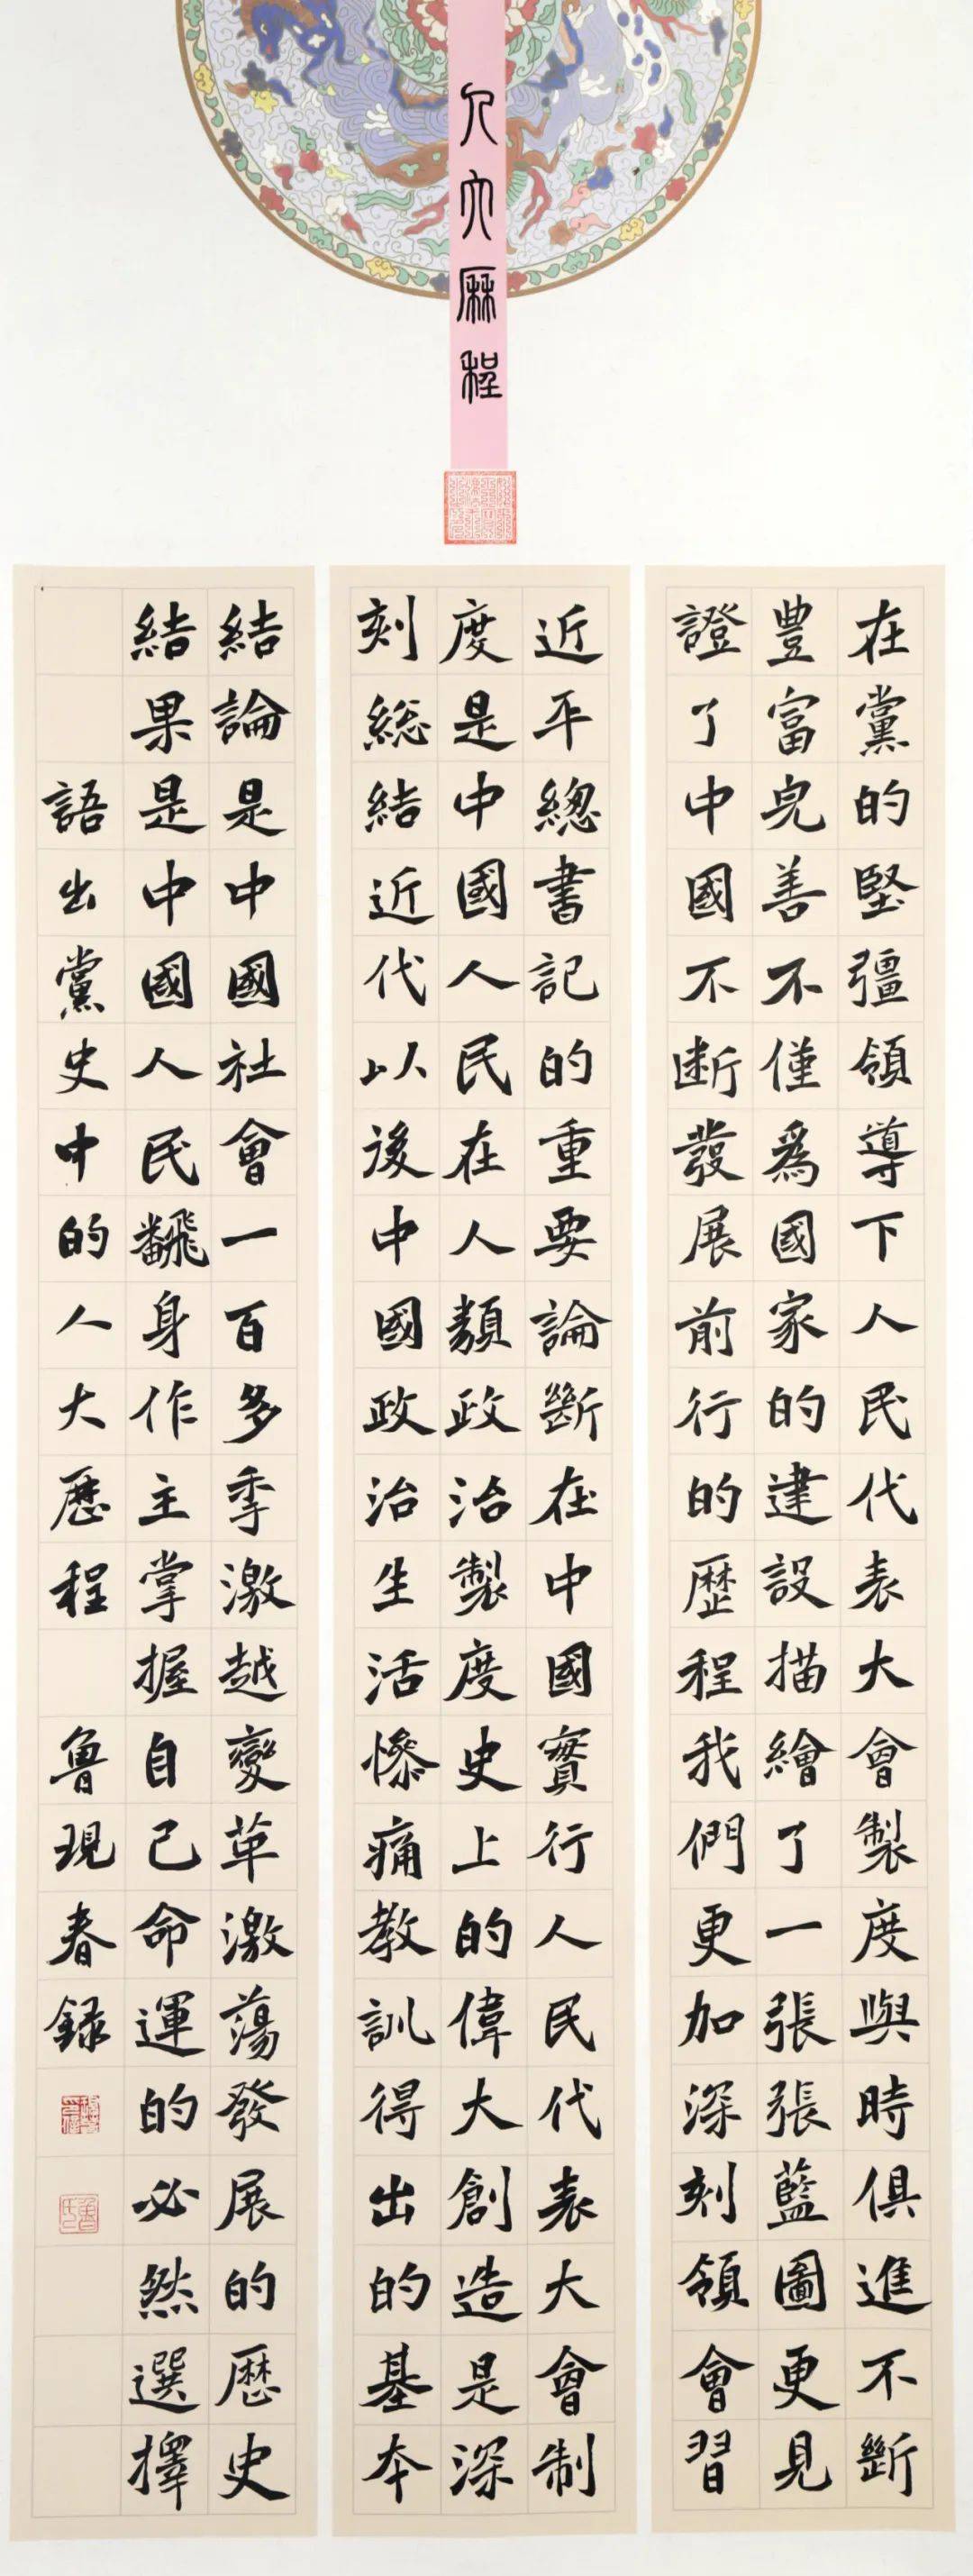 人大厤程
在黨的堅彊領導下人民代表大會製度與時俱進不斷
豐富皃善不僅爲國家的建設描繪了一張張藍圖更見
證了中國不断發展前行的歷程我們更加深刻領會習
近平總書記的重要論斷在中國實行人民代表大會制
度是中國人民在人類政治製度史上的偉大創造是深
刻総結近代以後中國政治生活慘痛教訓得出的基本
結論是中國社會一百多季激越變革激蕩發展的歷史
結果是中國人民飜身作主掌握自己命運的必然選擇
語出黨史中的人大歷程 魯現春錄